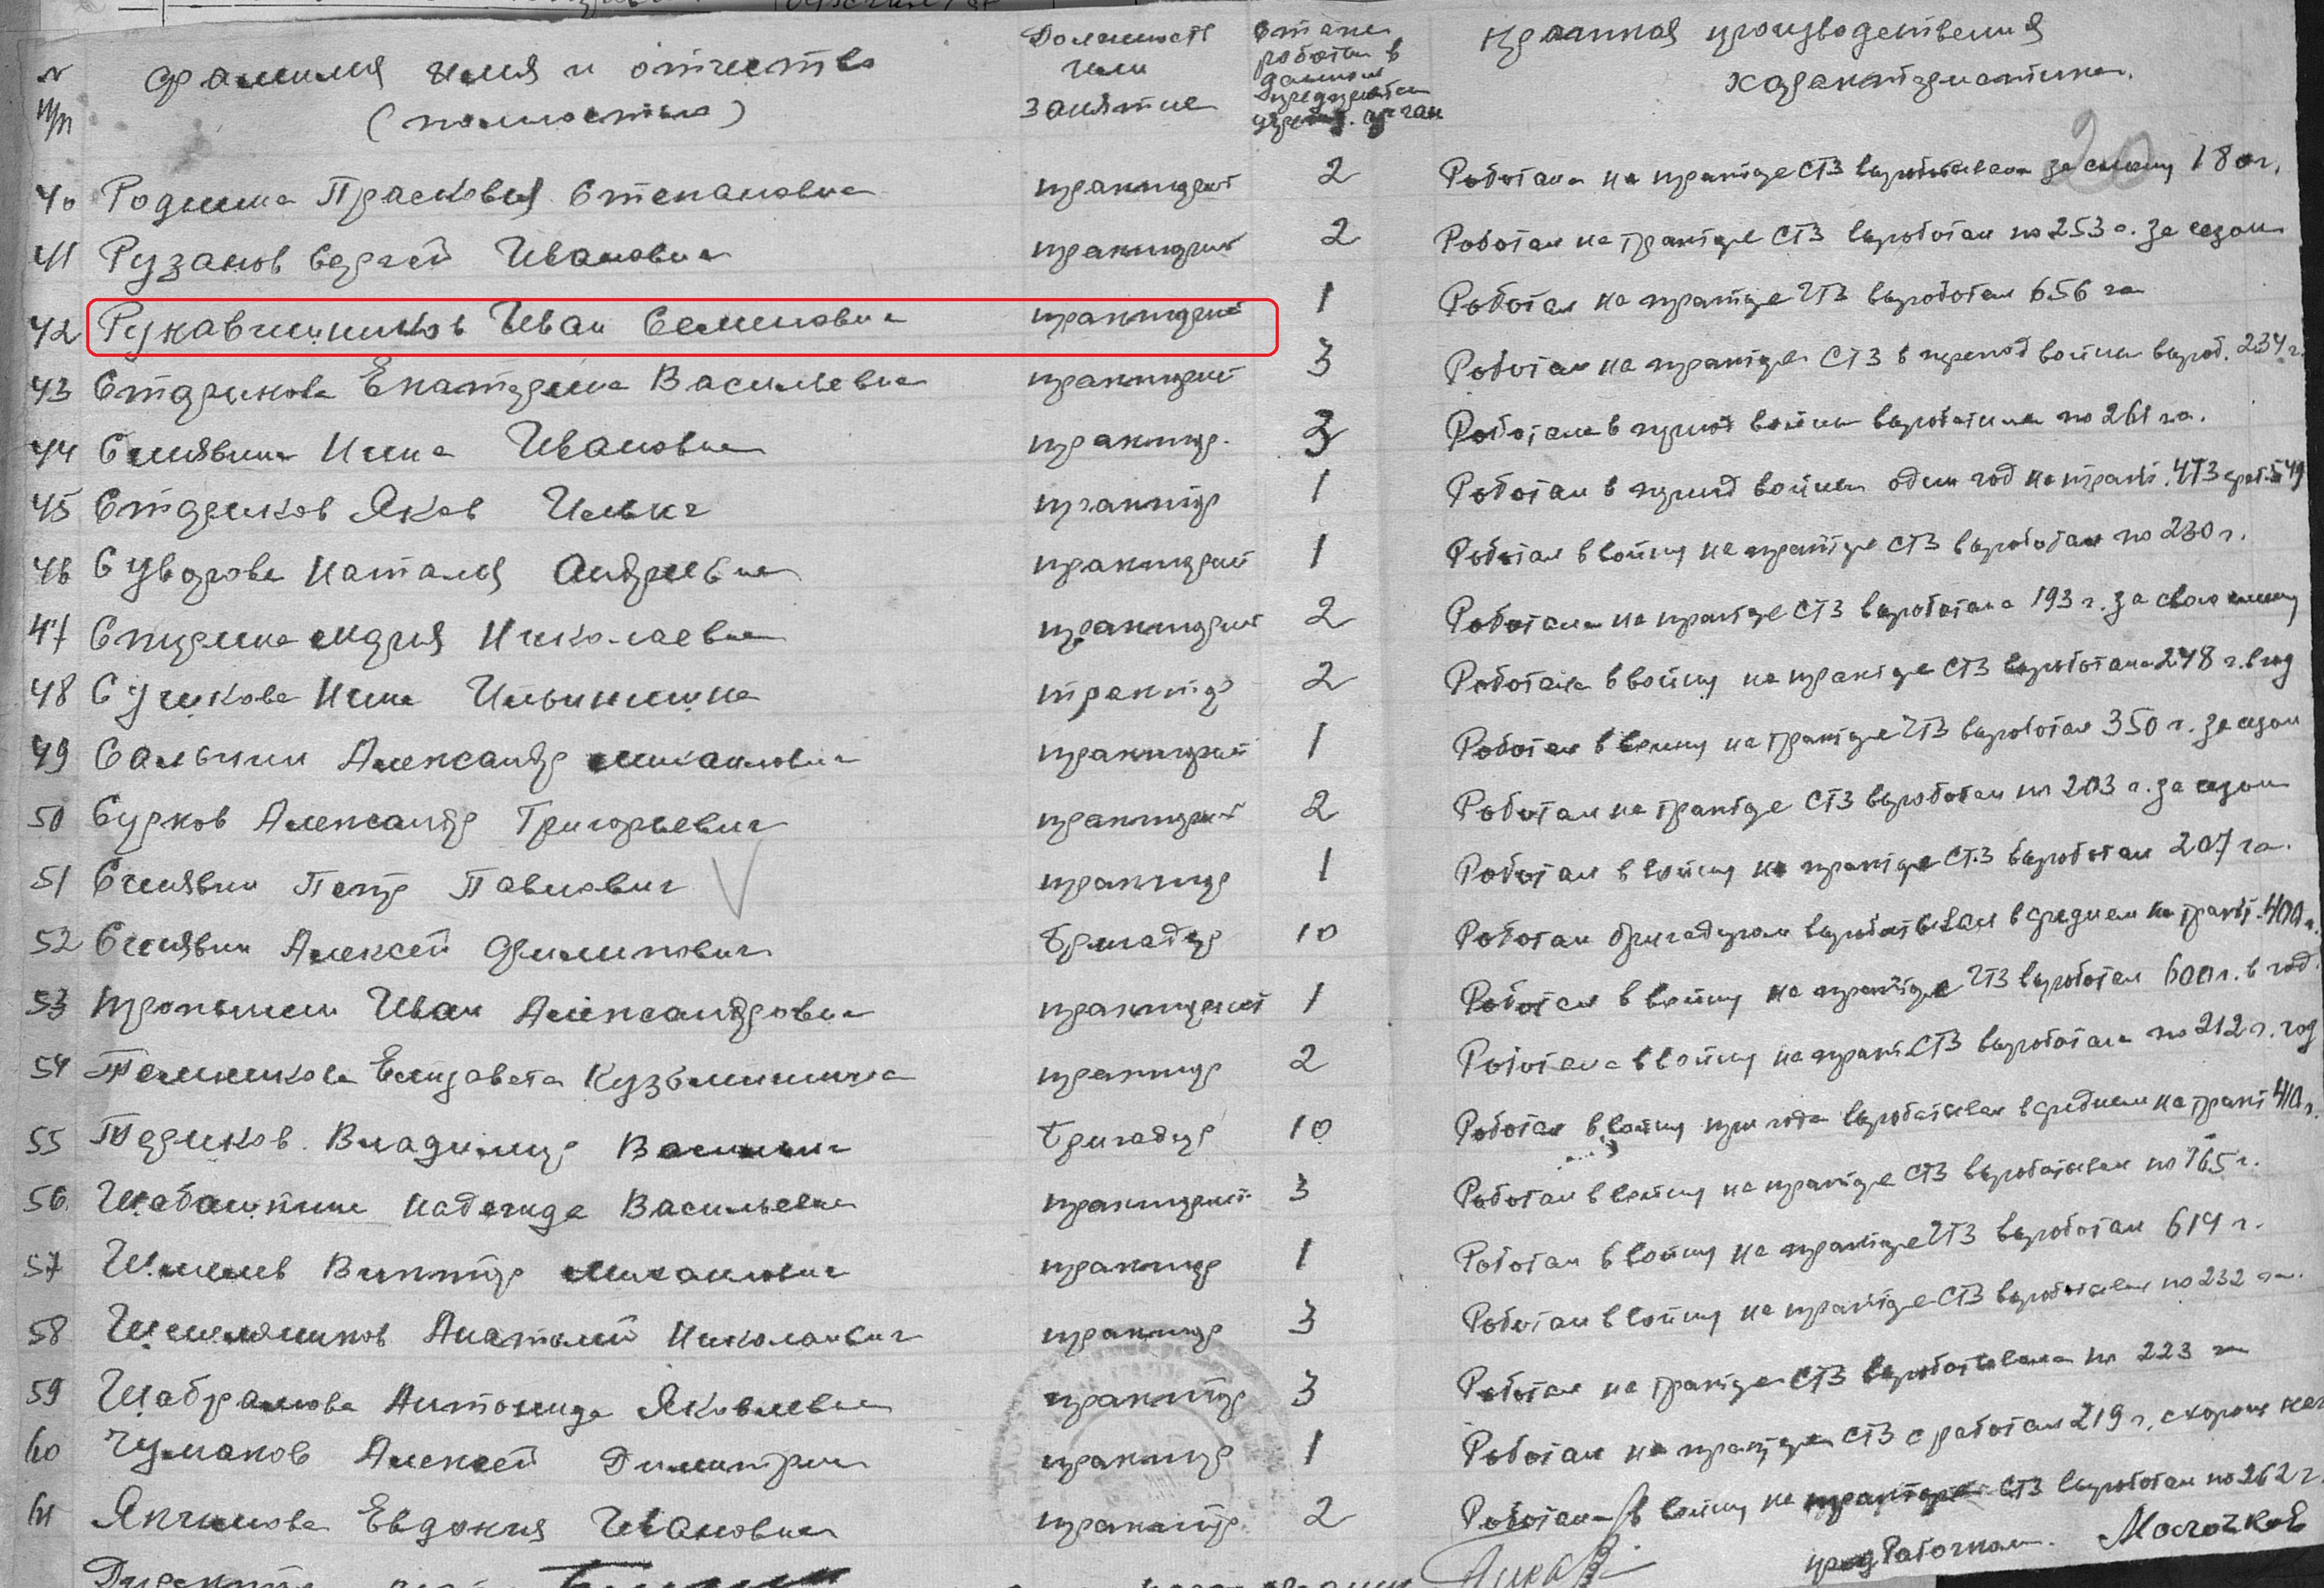 N п/п Фамилия имя и отчество (полностью) Должность или занятие Стаж работы в данном предприятии Краткая производственная характеристика.
20
40 Родина Прасковья Степановна тракторист 2 Работала на тракторе СТЗ за смену 180 г.
41 Рузанов Сергей Иванович тракторист 2 Работал на тракторе СТЗ выработал по 253 г. за сезон
42 Рукавишников Иван Семенович тракторист 1 Работал на тракторе ЧТЗ выработал 656 га
43 Старикова Екатерина Васильевна тракторист 3 Работал на тракторе СТЗ в период войны выроб. 234 г.
44 Синявина Нина Ивановна трактор. 3 Работала в период войны по 261 га.
45 Стариков Яков Ильич трактор 1 Работал в период войны один год на тракт. ЧТЗ 549
46 Суворова Наталья Андреевна тракторист 1 Работал в войну на тракторе СТЗ выработал по 230 г.
47 Мария Николаевна тракторист 2 Работала на тракторе СТЗ выработала 193 г. за свою смену
48 Сучкова Нина Ильинична трактор 2 Работала в войну на тракторе СТЗ выработала 248 г. в год
49 Салынин Александр Михайлович тракторист 1 Работал в войну на тракторе ЧТЗ выработал 350 г. за сезон
50 Сурков Александр Григорьевич тракторист 2 Работал на тракторе СТЗ выработал по 203 г. за сезон
51 Синявин Петр Павлович трактор 1 Работал в войну на тракторе СТЗ выработал 207 га.
52 Синявин Алексей Филипович бригадир 10 Работал бригадиром вырабатывал в среднем на тракт. 400 г.
53 Иван Александрович тракторист 1 Работал в войну на тракторе ЧТЗ выработал 600 г. в год
54 Темникова Елизавета Кузьминична трактор 2 Работала в войну на тракт. СТЗ выработала по 212 г. год
55 Териков Владимир Васильич бригадир 10 Работал в войну три года вырабатывал в среднем на тракт 410 г.
56 Шабашкина Надежда Васильевна тракторист 3 Работал в войну на тракторе СТЗ вырабатывал по 165 г.
57 Виктор Михайлович трактор 1 Работал в войну на тракторе ЧТЗ выработал 614 г.
58 Анатолий Николаевич трактор 3 Работал в войну на тракторе СТЗ вырабатывал по 232 га.
59 Шабрамова Антонида Яковлевна трактор 3 Работал на тракторе СТЗ вырабатывала по 223 га
60 Чумаков Алексей Дмитрич трактор 1 Работал на тракторе СТЗ сработал 219 г,
61 Япчинова Евдокия Ивановна трактор. 2 Работала в войну на тракторе СТЗ выработал по 262 г
пред Рабочком.
Директор